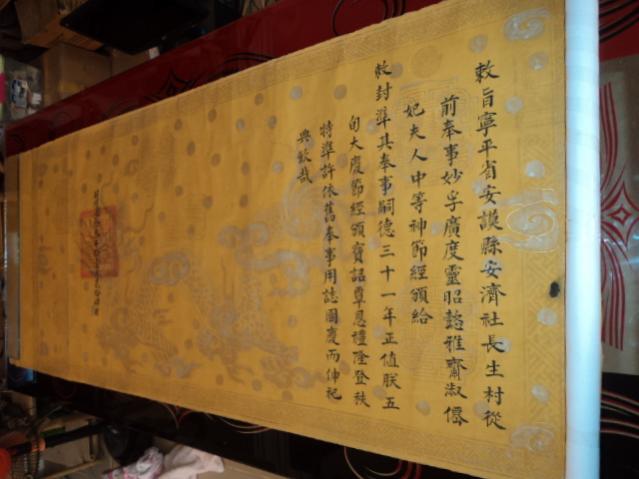 敕旨寧平省安謨縣安濟社長生村從
前奉事妙孚廣度靈昭懿雅齋淑僖
妃夫人中等神節經頒給
敕封準其奉事嗣德三十一年正值朕五
旬大慶節經頒寳詔覃恩禮隆登秩
特準許依舊奉事用誌國慶而伸祀
典欽哉